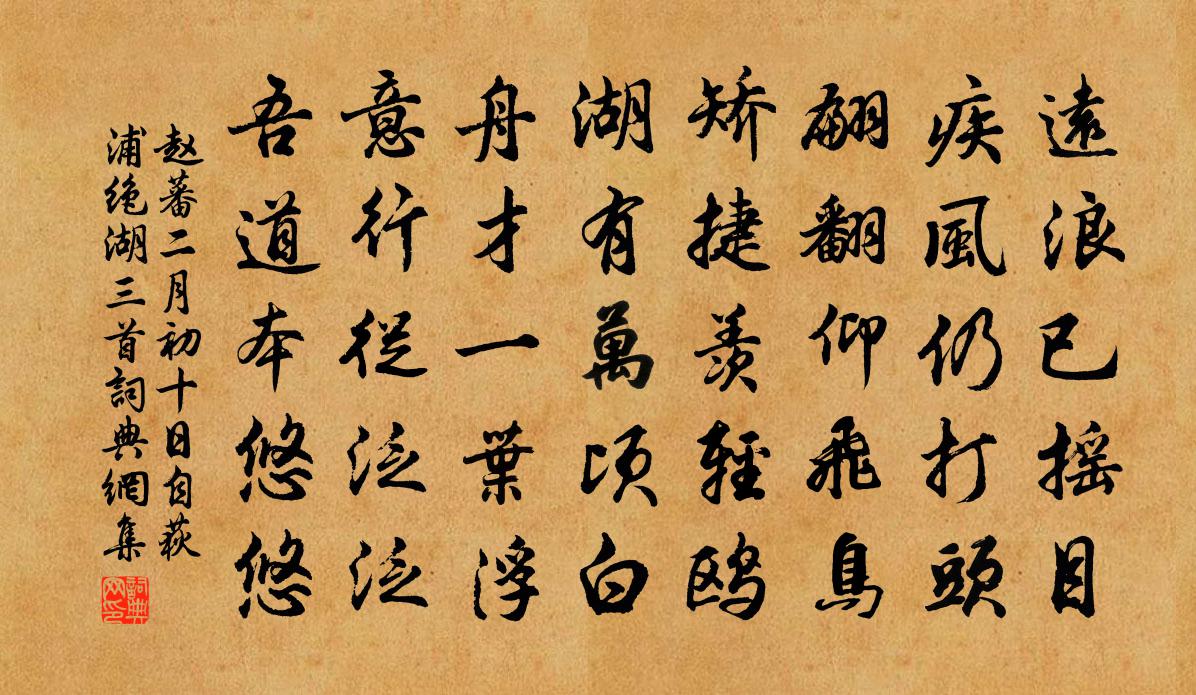 遠浪已搖目
疾風仍打頭
翩翻仰飛鳥
矯捷羨輕鷗
湖有萬頃白
舟才一葉浮
意行從泛泛
吾道本悠悠
赵蕃二月初十日自荻
浦绝湖三首詞典網集
詞典网印